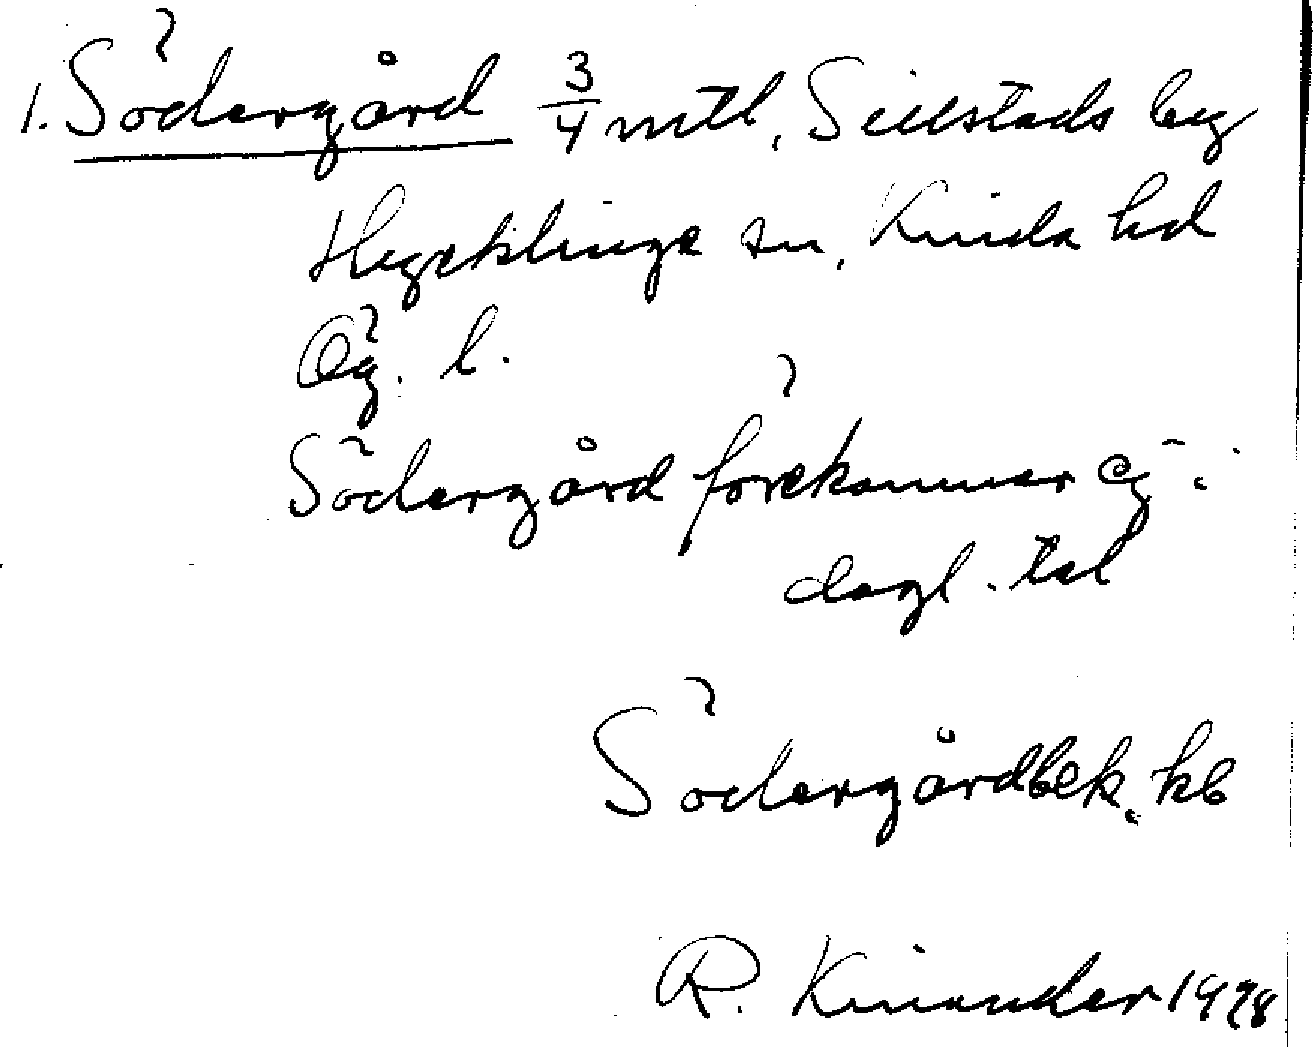 1. Södergård 3/4 mtl, Sillstads by
Hycklinge sn, Kinda hd
Ög. l.
Södergård förekommer ej i
dagl. tal
Södergård bek. kb
R. Kinander 1978